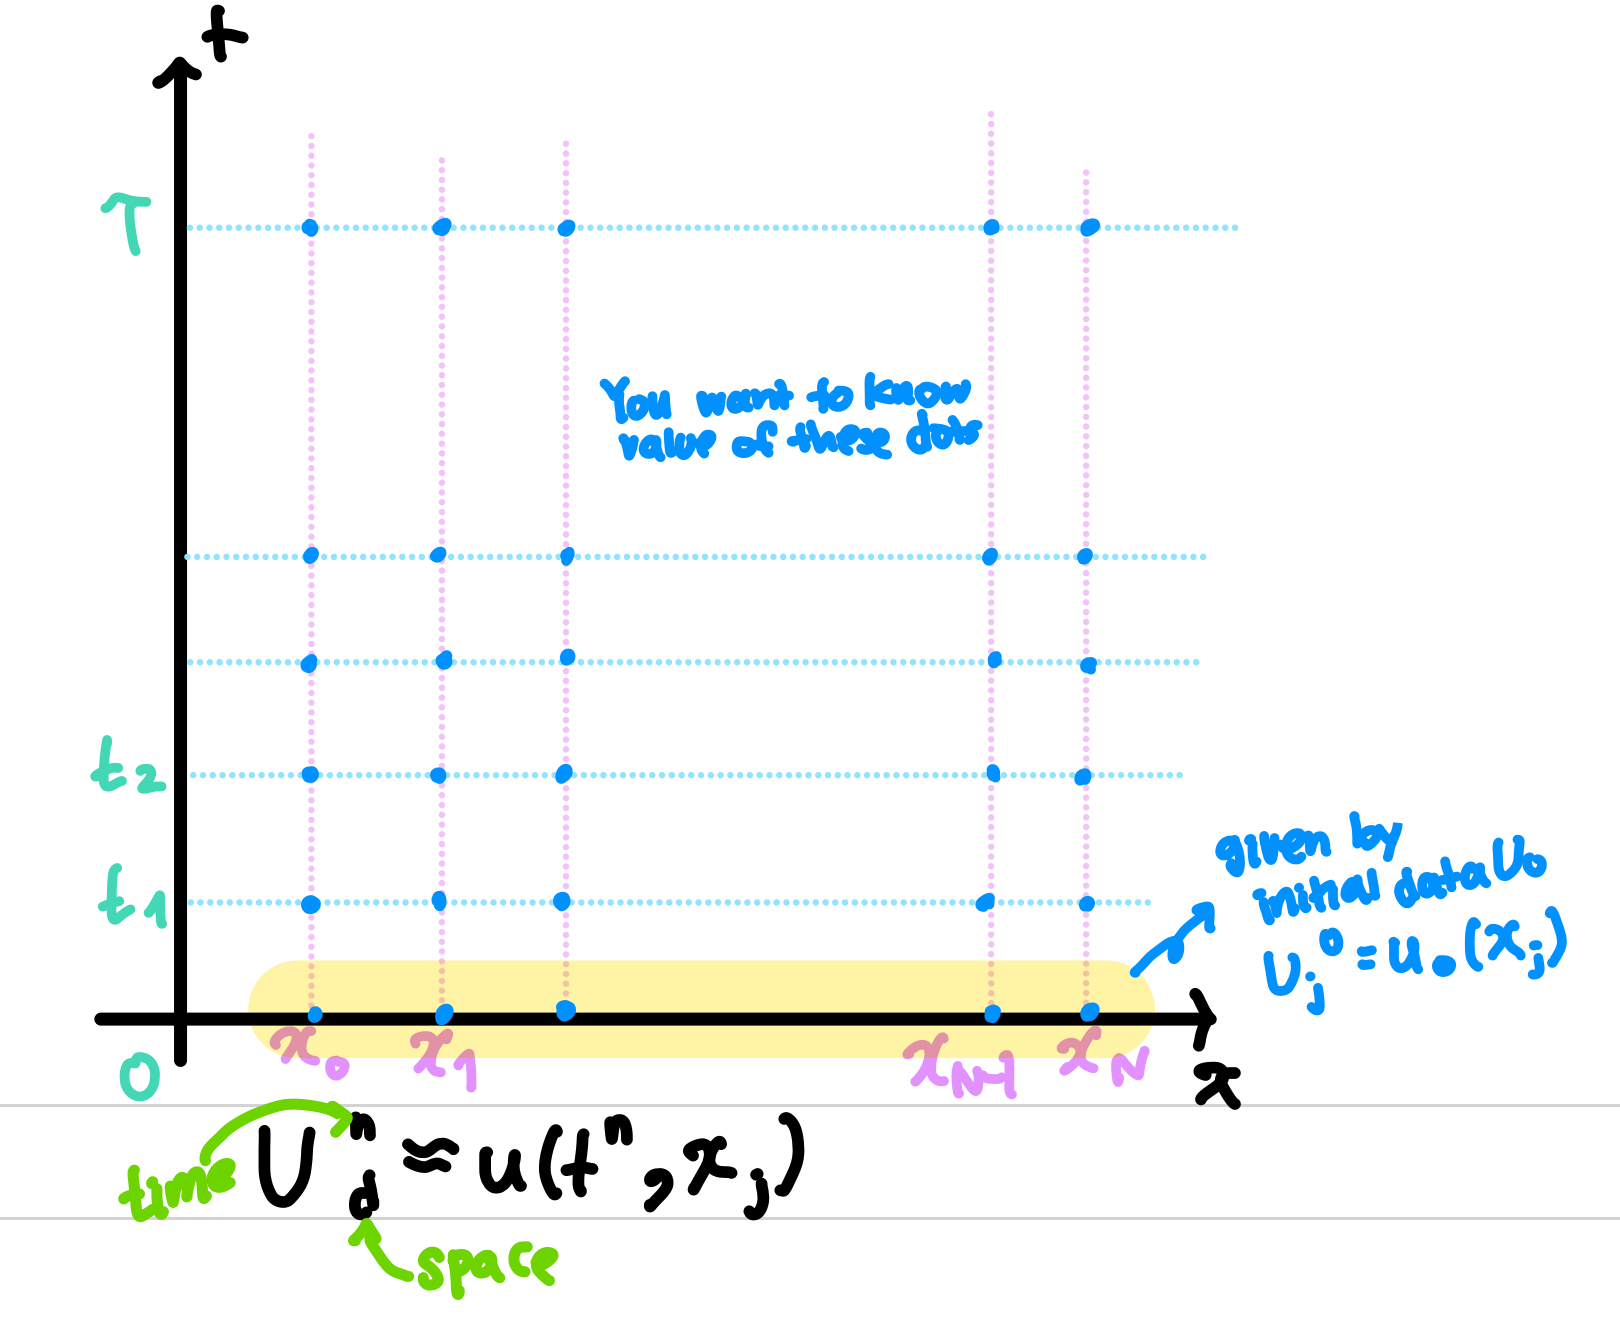 t
T
You want to know
value of these dots
t₂
t₁
given by
initial data U₀
Uⱼ⁰ = u₀(xⱼ)
x₀ x₁ x_{N-1} x_N
0
x
U_d^n ≈ u(tⁿ, xⱼ)
time
space